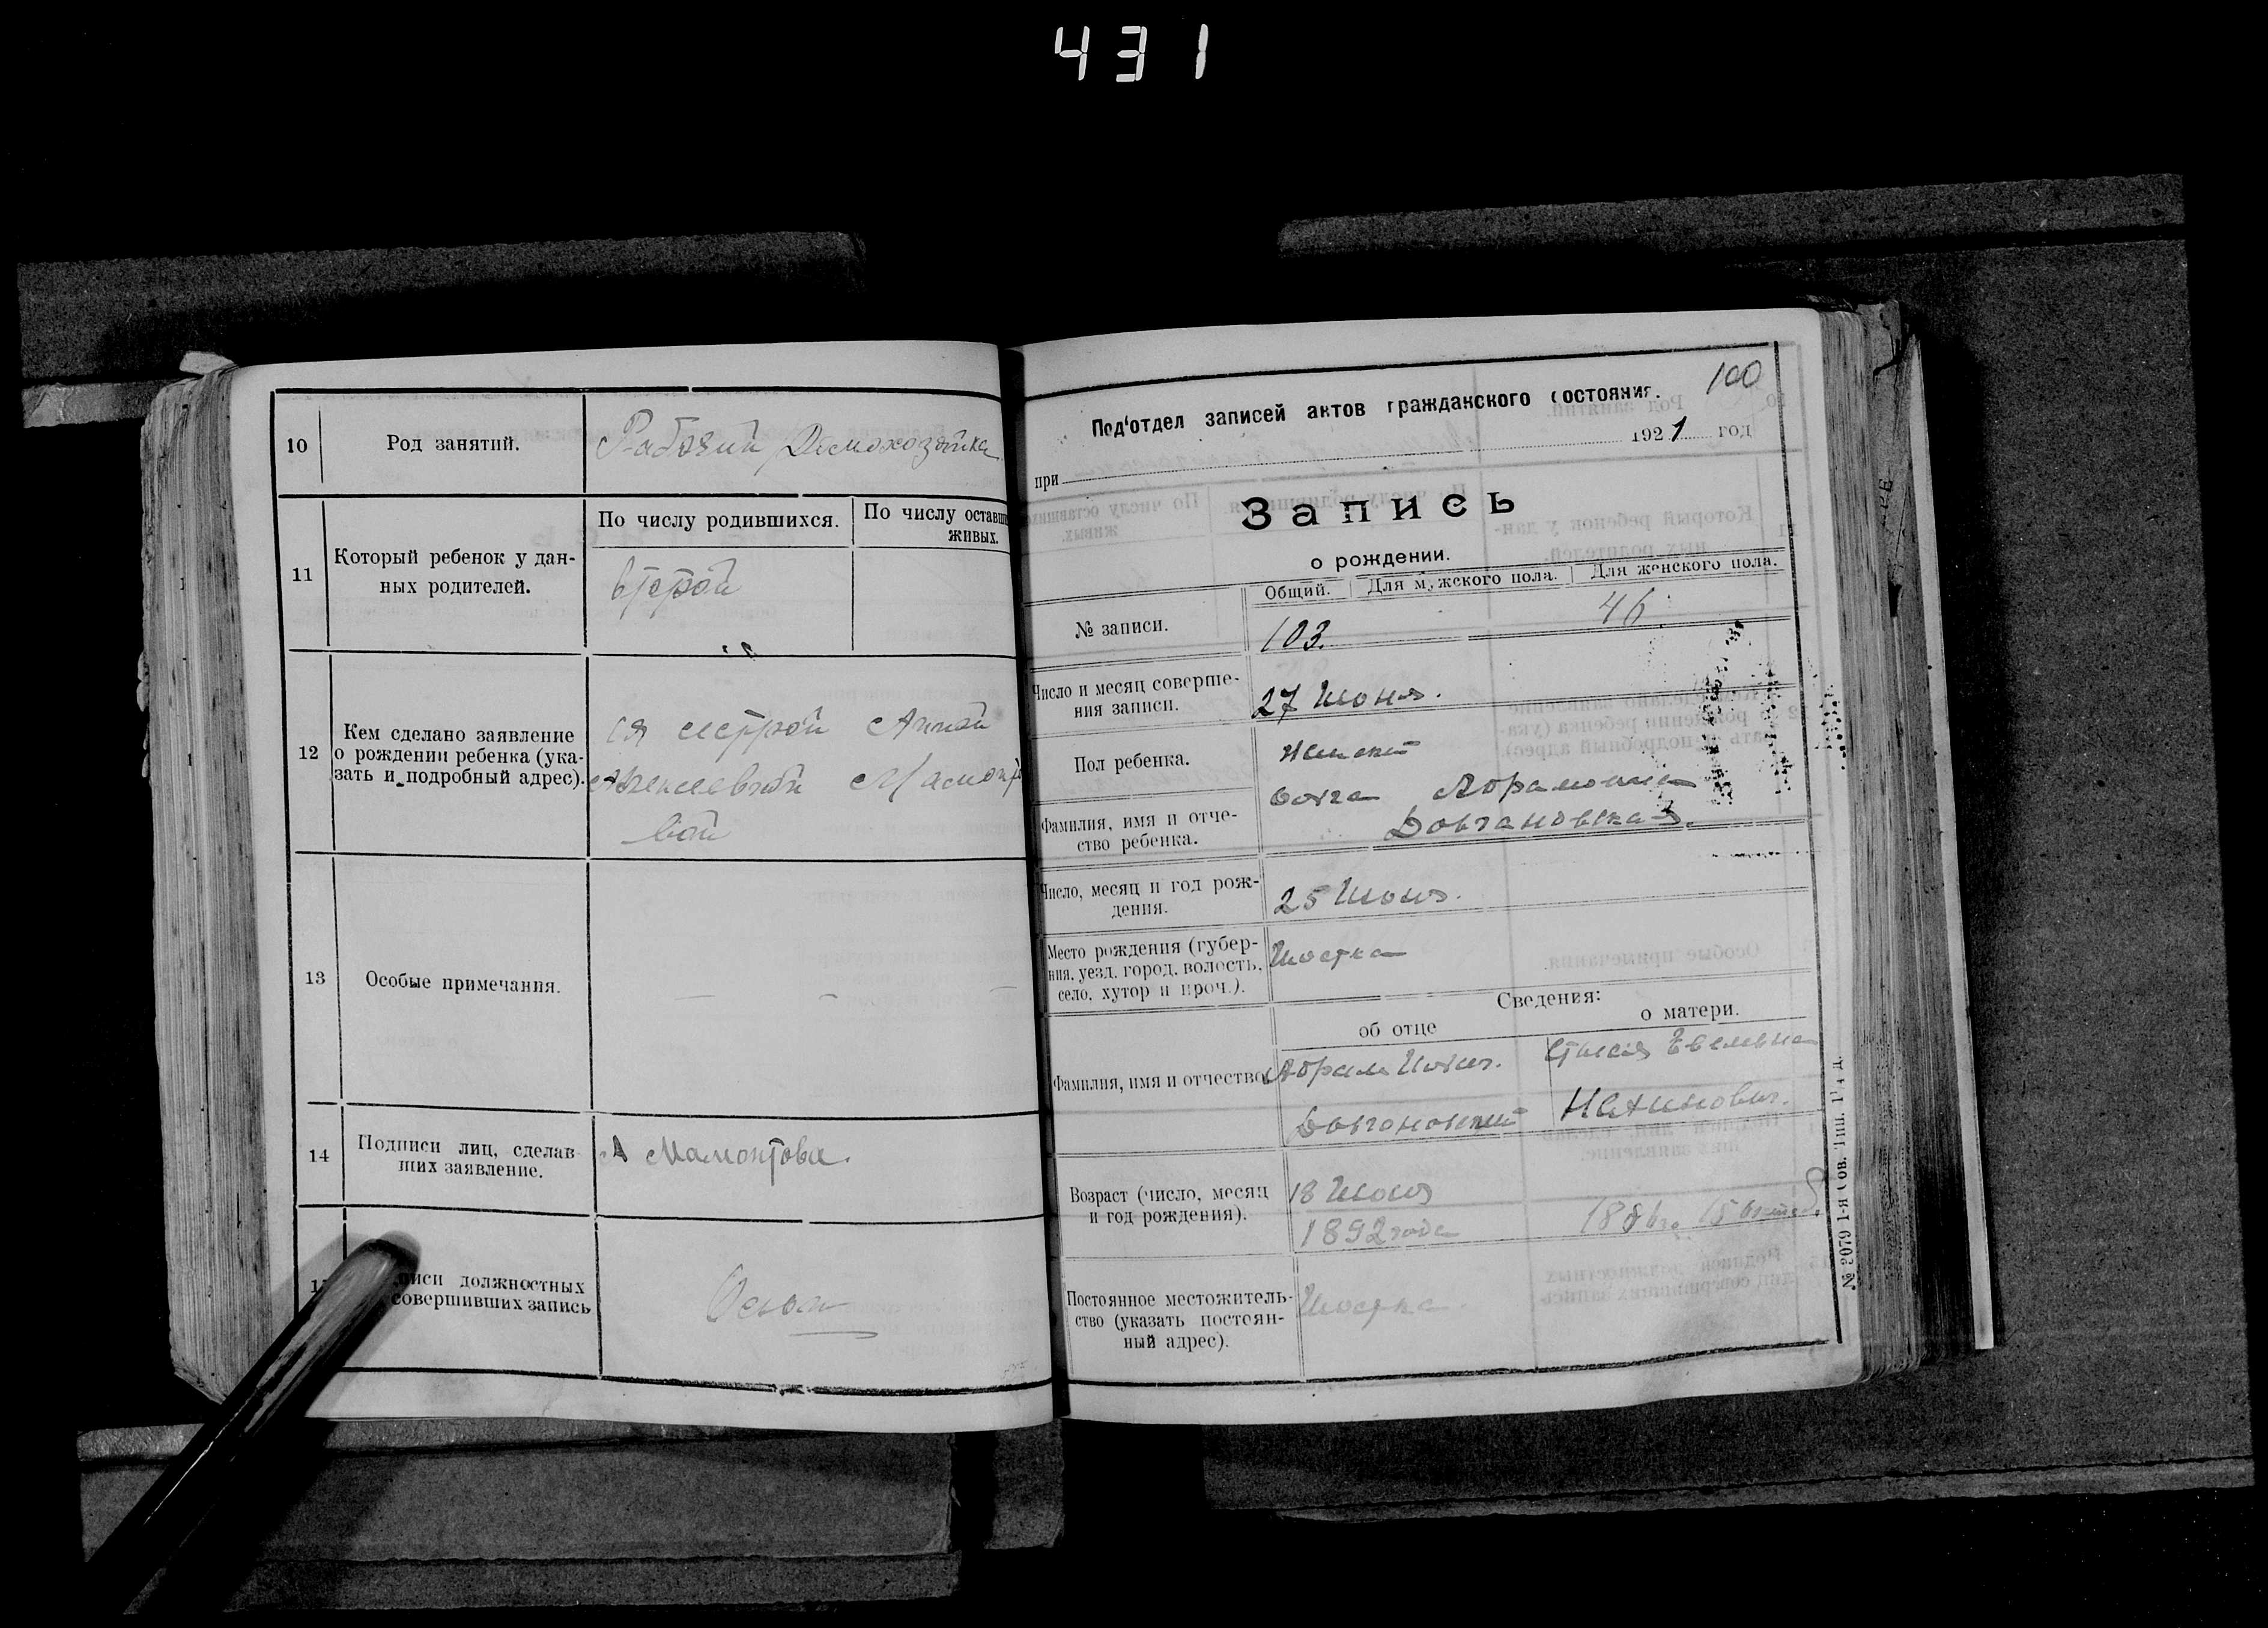 431
10
Род занятий.
Рабочий Домохозяйка
11
Который ребенок у дан-
ных родителей.
По числу родившихся.
По числу оставши
живых.
второй
12
Кем сделано заявление
о рождении ребенка (ука-
зать и подробный адрес).
ея сестрой Анной
Алексеевной Мамонто
вой
13
Особые примечания.
— — —
14
Подписи лиц, сделав
ших заявление.
А Мамонтова.
писи должностных
совершивших запись
100
Под'отдел записей актов гражданского состояния.
при
1921 год
Запись
о рождении.
Общий.
Для мужского пола.
Для женского пола.
№ записи.
103.
46
Число и месяц соверше-
ния записи.
27 Июня.
Пол ребенка.
женский
Фамилия, имя и отче-
ство ребенка.
Абрамовна
Довгановская.
Число, месяц и год рож-
дения.
25 Июня.
Место рождения (губер-
ния, уезд, город, волость,
село, хутор и проч.).
Шостка
Сведения:
об отце
о матери.
Фамилия, имя и отчество
Абрам
Довгановский
Нахимович.
Возраст (число, месяц
и год рождения).
18 Июня
1892 года
Постоянное местожитель-
ство (указать постоян-
ный адрес).
Шостка.
№ 2079 1-я Сов. Тип.